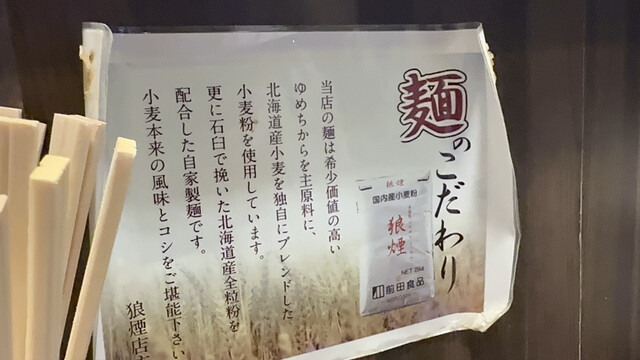 麺のこだわり
当店の麺は希少価値の高い
ゆめちからを主原料に、
北海道産小麦を独自にブレンドした
小麦粉を使用しています。
更に石臼で挽いた北海道産全粒粉を
配合した自家製麺です。
小麦本来の風味とコシをご堪能下さい
狼煙店
狼煙
国内産小麦粉
狼煙
NET 25kg
前田食品